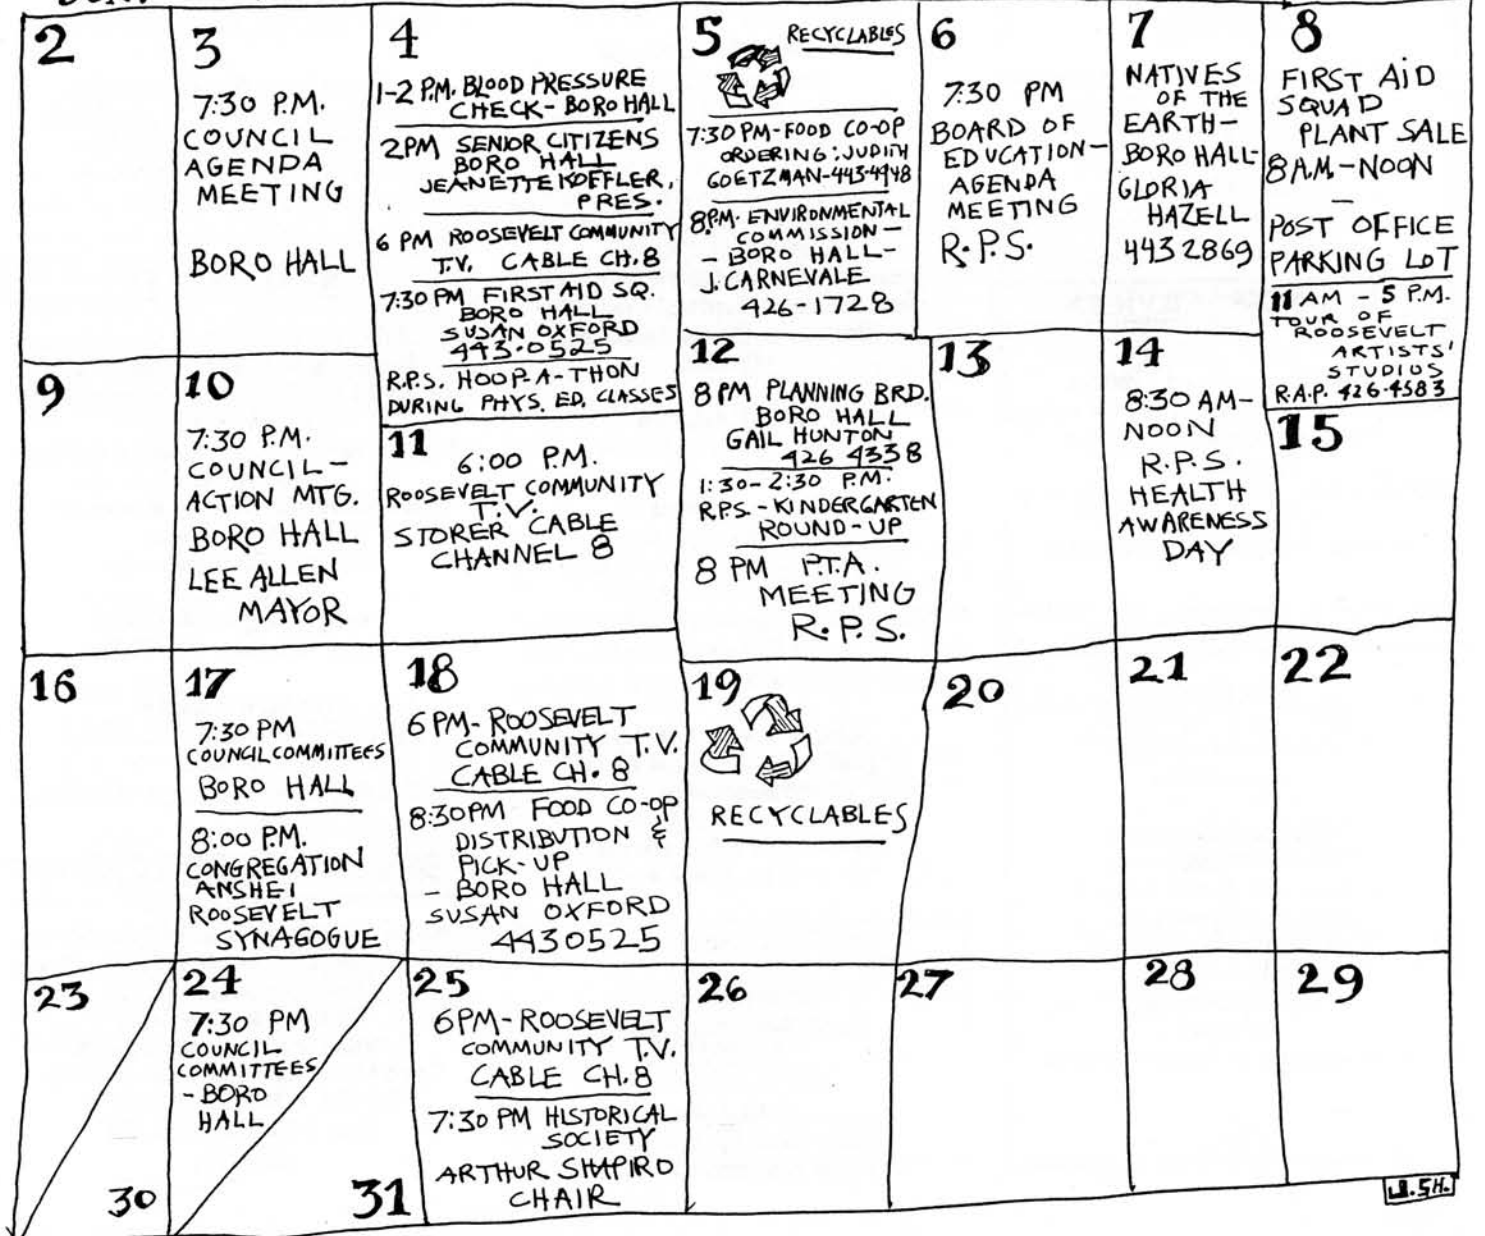 2
3
7:30 P.M.
COUNCIL
AGENDA
MEETING
BORO HALL
4
1-2 P.M. BLOOD PRESSURE
CHECK - BORO HALL
2PM SENIOR CITIZENS
BORO HALL
JEANETTE KOFFLER,
PRES.
6 PM ROOSEVELT COMMUNITY
T.V. CABLE CH. 8
7:30 PM FIRST AID SQ.
BORO HALL
SUSAN OXFORD
443-0525
R.P.S. HOOP-A-THON
DURING PHYS. ED. CLASSES
5
RECYCLABLES
7:30 PM-FOOD CO-OP
ORDERING: JUDITH
GOETZMAN-443-4948
8PM. ENVIRONMENTAL
COMMISSION -
- BORO HALL -
J. CARNEVALE
426-1728
6
7:30 PM
BOARD OF
EDUCATION -
AGENDA
MEETING
R.P.S.
7
NATIVES
OF THE
EARTH -
BORO HALL -
GLORIA
HAZELL
443 2869
8
FIRST AID
SQUAD
PLANT SALE
8 A.M. - NOON
-
POST OFFICE
PARKING LOT
11 AM - 5 P.M.
TOUR OF
ROOSEVELT
ARTISTS'
STUDIOS
R.A.P. 426-4583
9
10
7:30 P.M.
COUNCIL -
ACTION MTG.
BORO HALL
LEE ALLEN
MAYOR
11
6:00 P.M.
ROOSEVELT COMMUNITY
T.V.
STORER CABLE
CHANNEL 8
12
8 PM PLANNING BRD.
BORO HALL
GAIL HUNTON
426 4338
1:30-2:30 P.M.
R.P.S. - KINDERGARTEN
ROUND-UP
8 PM P.T.A.
MEETING
R.P.S.
13
14
8:30 AM-
NOON
R.P.S.
HEALTH
AWARENESS
DAY
15
16
17
7:30 PM
COUNCIL COMMITTEES
BORO HALL
8:00 P.M.
CONGREGATION
ANSHEI
ROOSEVELT
SYNAGOGUE
18
6 PM - ROOSEVELT
COMMUNITY T.V.
CABLE CH. 8
8:30PM FOOD CO-OP
DISTRIBUTION &
PICK-UP
- BORO HALL
SUSAN OXFORD
4430525
19
RECYCLABLES
20
21
22
23
30
24
7:30 PM
COUNCIL
COMMITTEES
- BORO
HALL
31
25
6PM - ROOSEVELT
COMMUNITY T.V.
CABLE CH. 8
7:30 PM HISTORICAL
SOCIETY
ARTHUR SHAPIRO
CHAIR
26
27
28
29